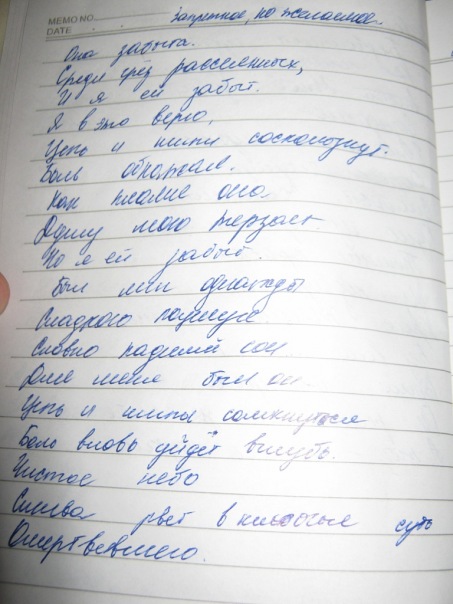 MEMO NO.
Запретное, но желаемое..
DATE . .
Она забыта.
Среди грёз рассеянных,
И я ей забыт.
Я в это верю,
Цепь и шипы соскользнут.
Боль обнажаем.
Как пламя она
Душу мою терзает
Но я ей забыт.
Был миг однажды
Сладкого поцелуя
Словно падший сон
Для меня был он.
Цепь и шипы сомкнуться
Боль вновь уйдёт вглубь.
Чистое небо
Синева рвёт в клочья суть
Омертвевшего.